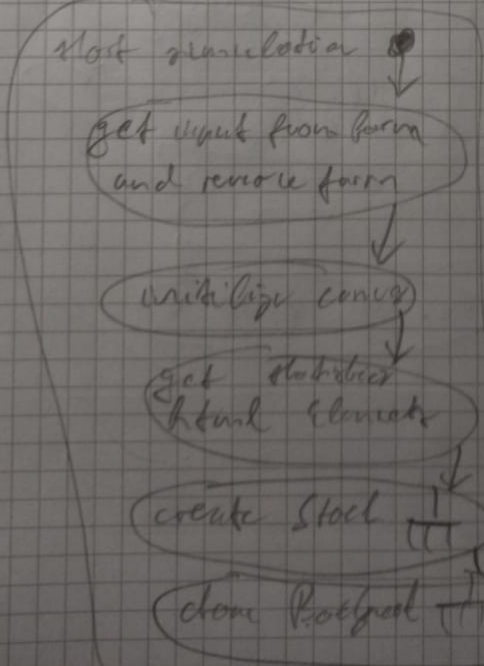 Start simulation
get input from form
and remove form
initilize canvas
get statistics
html Elements
create Stock
draw